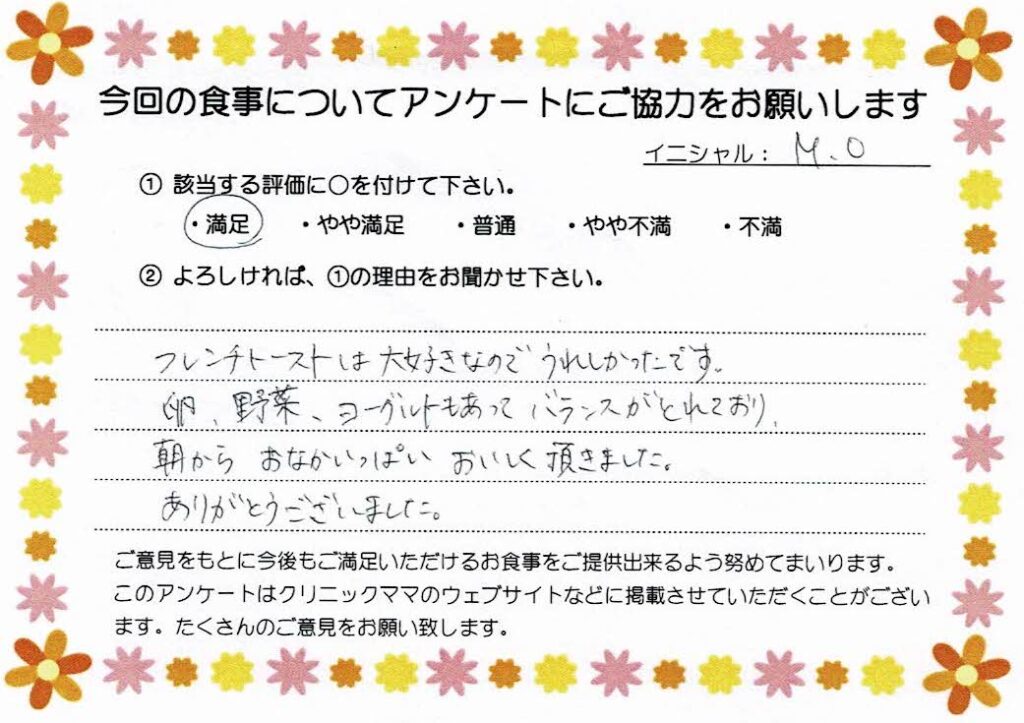 今回の食事についてアンケートにご協力をお願いします
イニシャル： M.O
① 該当する評価に○を付けて下さい。
・満足 ・やや満足 ・普通 ・やや不満 ・不満
② よろしければ、①の理由をお聞かせ下さい。
フレンチトーストは大好きなのでうれしかったです。
卵、野菜、ヨーグルトもあってバランスがとれており、
朝から おなかいっぱい おいしく頂きました。
ありがとうございました。
ご意見をもとに今後もご満足いただけるお食事をご提供出来るよう努めてまいります。
このアンケートはクリニックママのウェブサイトなどに掲載させていただくことがござい
ます。たくさんのご意見をお願い致します。